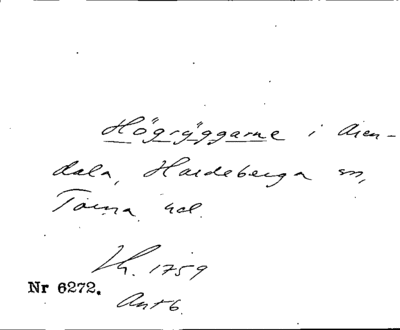 Högryggarne i Aren-
dala, Hardeberga sn,
Torna hd.
Lh. 1759
Nr 6272.
Ant 6.